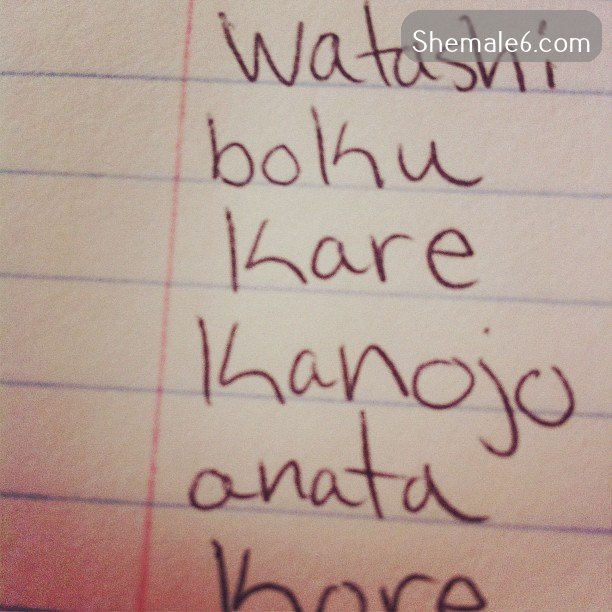 Shemale6.com
watashi
boku
Kare
Kanojo
anata
Kore